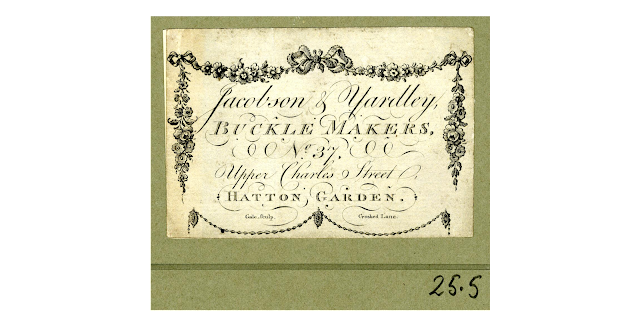 Jacobson & Yardley,
BUCKLE MAKERS,
No. 37,
Upper Charles Street
HATTON GARDEN.
Gale. Sculp. Crooked Lane.
25.5